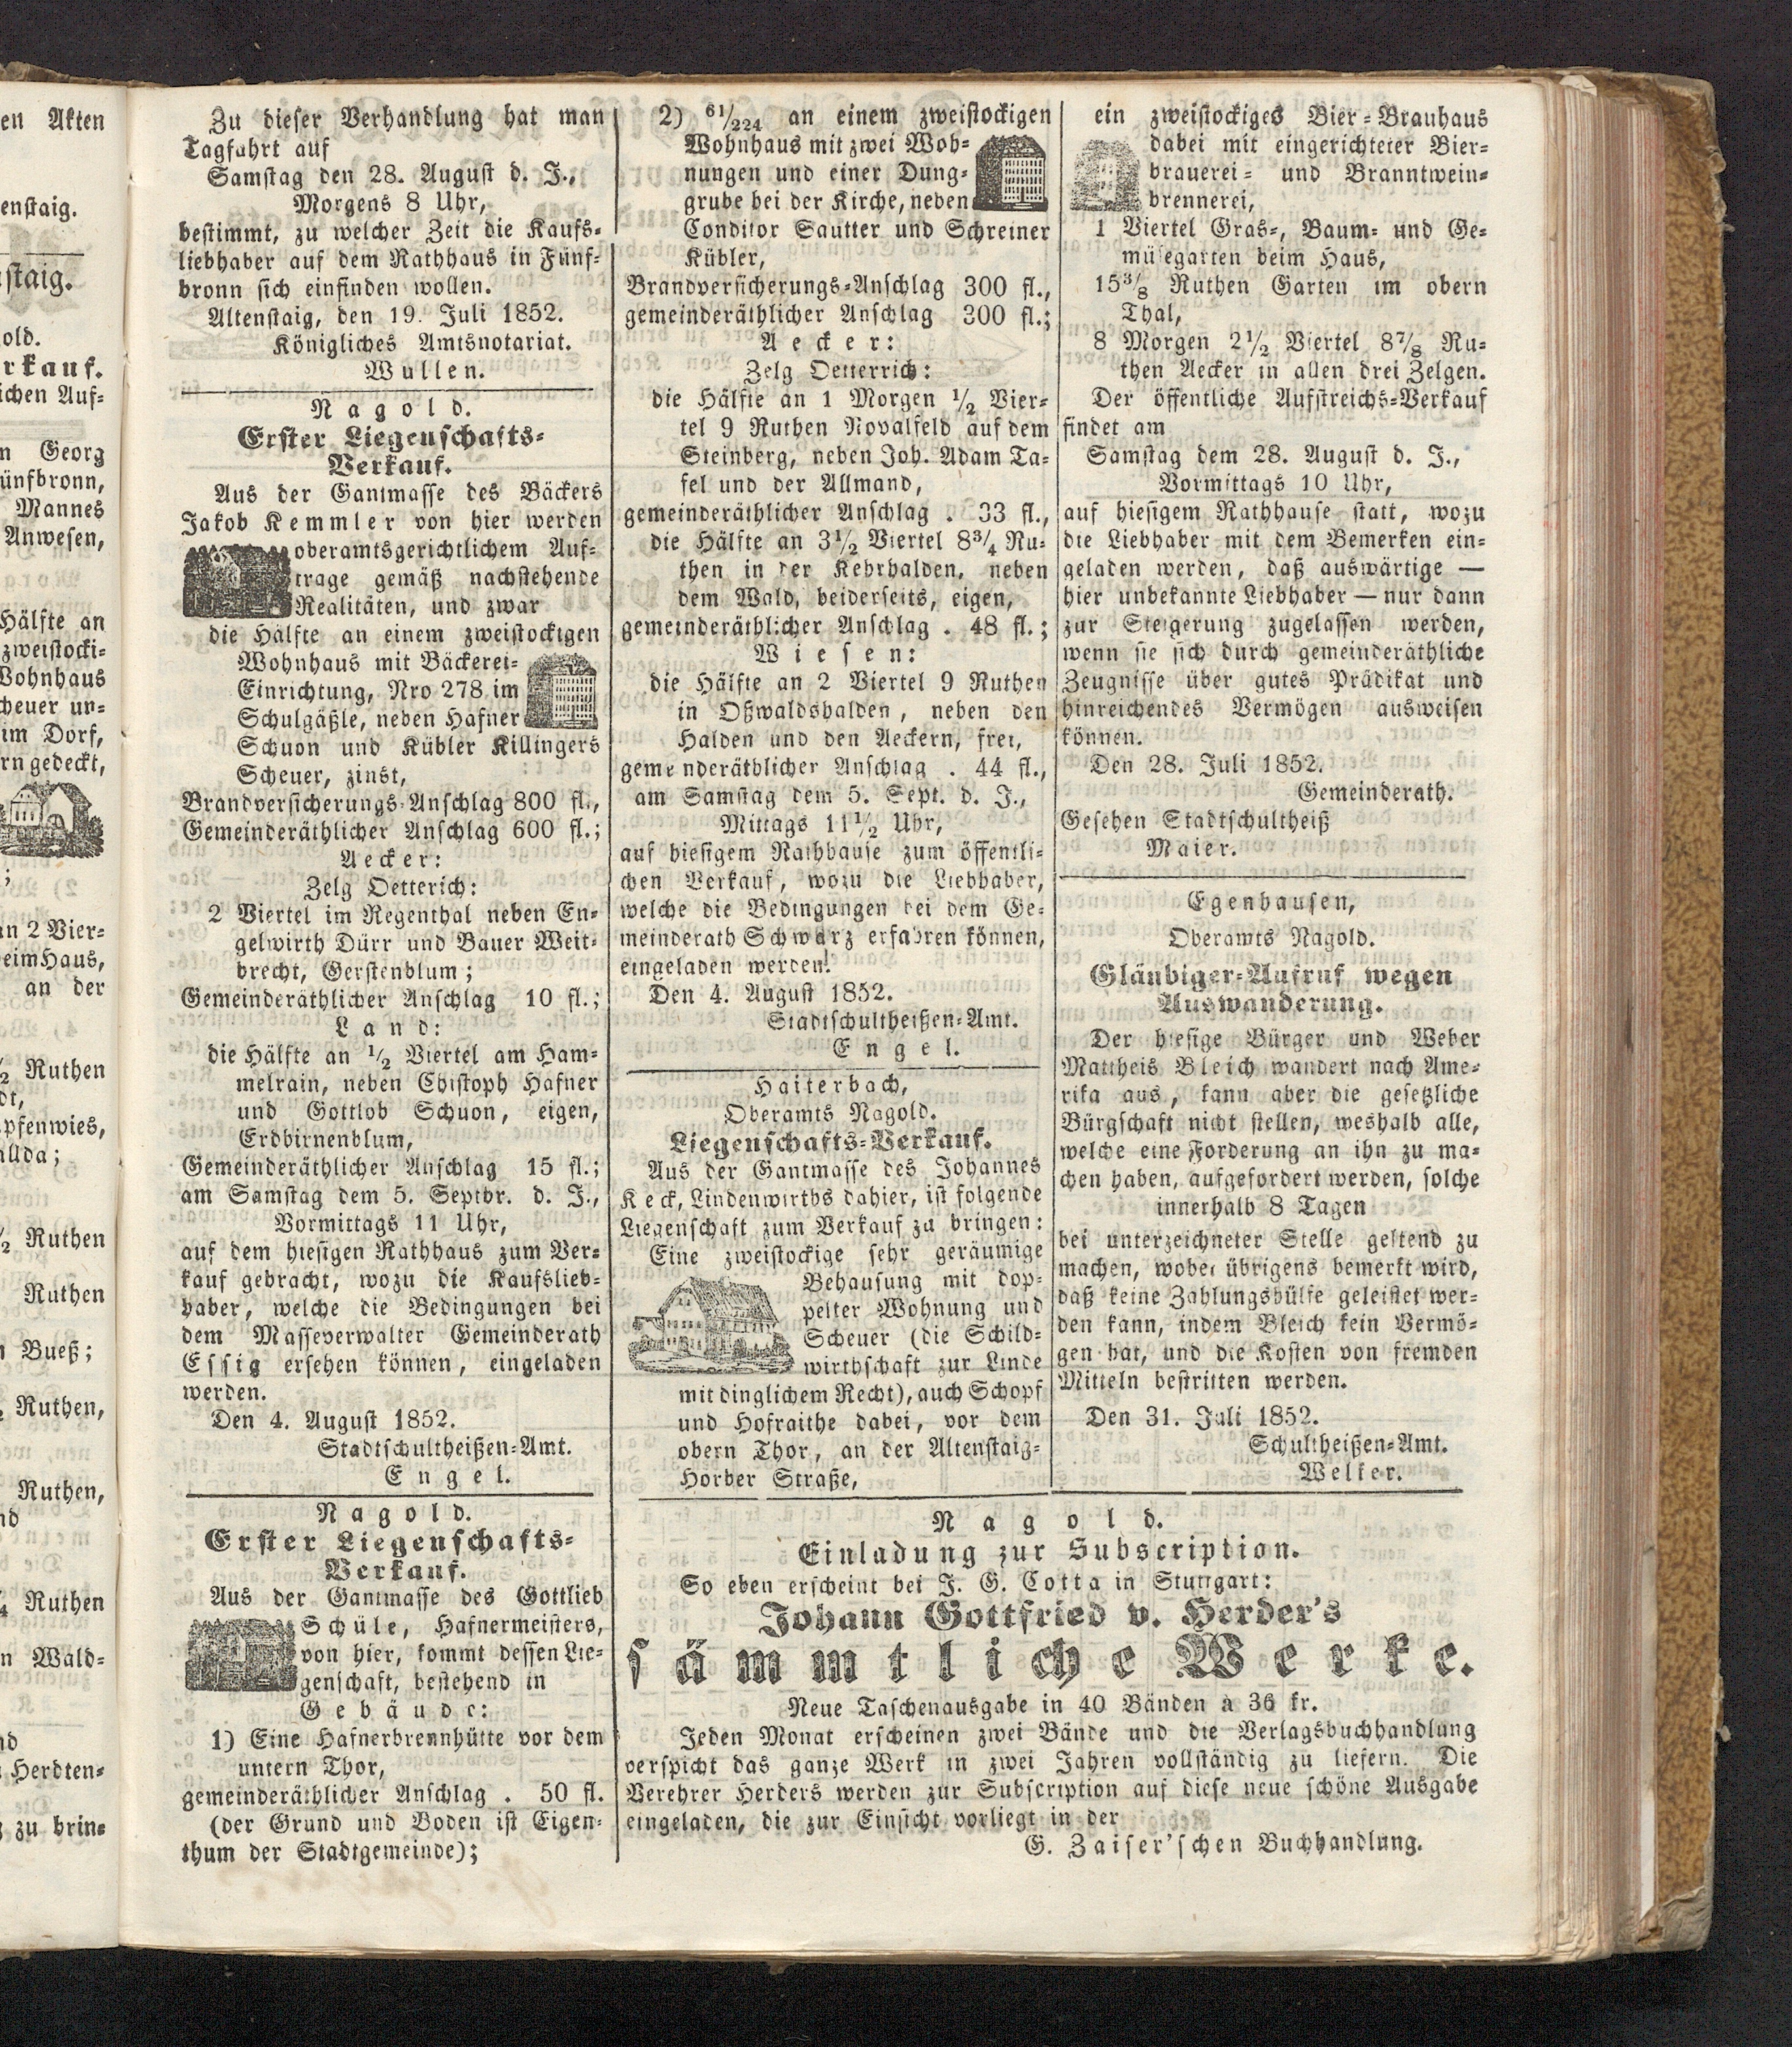 en Akten
enstaig.
staig.
old.
rkauf.
ichen Auf-
n Georg
ünfbronn,
Mannes
Anwesen,
Hälfte an
zweistocki-
Wohnhaus
cheuer un-
im Dorf,
rn gedeckt,
;
an 2 Vier-
eim Haus,
an der
½ Ruthen
dt,
pfenwies,
allda;
½ Ruthen
Ruthen
n Bueß;
Ruthen,
Ruthen,
nd
¼ Ruthen
n Wald-
nd
Herdten-
zu brin-
Zu dieser Verhandlung hat man
Tagfahrt auf
Samstag den 28. August d. J.,
Morgens 8 Uhr,
bestimmt, zu welcher Zeit die Kaufs-
liebhaber auf dem Rathhaus in Fünf-
bronn sich einfinden wollen.
Altenstaig, den 19. Juli 1852.
Königliches Amtsnotariat.
Wullen.
Nagold.
Erster Liegenschafts-
Verkauf.
Aus der Gantmasse des Bäckers
Jakob Kemmler von hier werden
oberamtsgerichtlichem Auf-
trage gemäß nachstehende
Realitäten, und zwar
die Hälfte an einem zweistockigen
Wohnhaus mit Bäckerei-
Einrichtung, Nro 278 im
Schulgäßle, neben Hafner
Schuon und Kübler Killingers
Scheuer, zinst,
Brandversicherungs-Anschlag 800 fl.,
Gemeinderäthlicher Anschlag 600 fl.;
Aecker:
Zelg Oetterich:
2 Viertel im Regenthal neben En-
gelwirth Dürr und Bauer Weit-
brecht, Gerstenblum;
Gemeinderäthlicher Anschlag 10 fl.;
Land:
die Hälfte an ½ Viertel am Ham-
melrain, neben Chistoph Hafner
und Gottlob Schuon, eigen,
Erdbirnenblum,
Gemeinderäthlicher Anschlag 15 fl.;
am Samstag dem 5. Septbr. d. J.,
Vormittags 11 Uhr,
auf dem hiesigen Rathhaus zum Ver-
kauf gebracht, wozu die Kaufslieb-
haber, welche die Bedingungen bei
dem Masseverwalter Gemeinderath
Essig ersehen können, eingeladen
werden.
Den 4. August 1852.
Stadtschultheißen-Amt.
Engel.
Nagold.
Erster Liegenschafts-
Verkauf.
Aus der Gantmasse des Gottlieb
Schüle, Hafnermeisters,
von hier, kommt dessen Lie-
genschaft, bestehend in
Gebäude:
1) Eine Hafnerbrennhütte vor dem
untern Thor,
gemeinderäthlicher Anschlag . 50 fl.
(der Grund und Boden ist Eigen-
thum der Stadtgemeinde);
2) 61/224 an einem zweistockigen
Wohnhaus mit zwei Woh-
nungen und einer Dung-
grube bei der Kirche, neben
Conditor Sautter und Schreiner
Kübler,
Brandversicherungs-Anschlag 300 fl.,
gemeinderäthlicher Anschlag 300 fl.;
Aecker:
Zelg Oetterrich:
die Hälfte an 1 Morgen ½ Vier-
tel 9 Ruthen Novalfeld auf dem
Steinberg, neben Joh. Adam Ta-
fel und der Allmand,
gemeinderäthlicher Anschlag . 33 fl.,
die Hälfte an 3½ Viertel 8¾ Ru-
then in der Kehrhalden, neben
dem Wald, beiderseits, eigen,
gemeinderäthlicher Anschlag . 48 fl.;
Wiesen:
die Hälfte an 2 Viertel 9 Ruthen
in Oßwaldshalden, neben den
Halden und den Aeckern, frei,
gemeinderäthlicher Anschlag . 44 fl.,
am Samstag dem 5. Sept. d. J.,
Mittags 11½ Uhr,
auf hiesigem Rathhause zum öffentli-
chen Verkauf, wozu die Liebhaber,
welche die Bedingungen bei dem Ge-
meinderath Schwarz erfahren können,
eingeladen werden!
Den 4. August 1852.
Stadtschultheißen-Amt.
Engel.
Haiterbach,
Oberamts Nagold.
Liegenschafts-Verkauf.
Aus der Gantmasse des Johannes
Keck, Lindenwirths dahier, ist folgende
Liegenschaft zum Verkauf zu bringen:
Eine zweistockige sehr geräumige
Behausung mit dop-
pelter Wohnung und
Scheuer (die Schild-
wirthschaft zur Linde
mit dinglichem Recht), auch Schopf
und Hofraithe dabei, vor dem
obern Thor, an der Altenstaig-
Horber Straße,
ein zweistockiges Bier-Brauhaus
dabei mit eingerichteter Bier-
brauerei- und Branntwein-
brennerei,
1 Viertel Gras-, Baum- und Ge-
müsegarten beim Haus,
15⅜ Ruthen Garten im obern
Thal,
8 Morgen 2½ Viertel 8⅞ Ru-
then Aecker in allen drei Zelgen.
Der öffentliche Aufstreichs-Verkauf
findet am
Samstag dem 28. August d. J.,
Vormittags 10 Uhr,
auf hiesigem Rathhause statt, wozu
die Liebhaber mit dem Bemerken ein-
geladen werden, daß auswärtige —
hier unbekannte Liebhaber — nur dann
zur Steigerung zugelassen werden,
wenn sie sich durch gemeinderäthliche
Zeugnisse über gutes Prädikat und
hinreichendes Vermögen ausweisen
können.
Den 28. Juli 1852.
Gemeinderath.
Gesehen Stadtschultheiß
Maier.
Egenhausen,
Oberamts Nagold.
Gläubiger-Aufruf wegen
Auswanderung.
Der hiesige Bürger und Weber
Mattheis Bleich wandert nach Ame-
rika aus, kann aber die gesetzliche
Bürgschaft nicht stellen, weshalb alle,
welche eine Forderung an ihn zu ma-
chen haben, aufgefordert werden, solche
innerhalb 8 Tagen
bei unterzeichneter Stelle geltend zu
machen, wobei übrigens bemerkt wird,
daß keine Zahlungshülfe geleistet wer-
den kann, indem Bleich kein Vermö-
gen hat, und die Kosten von fremden
Mitteln bestritten werden.
Den 31. Juli 1852.
Schultheißen-Amt.
Welker.
Nagold.
Einladung zur Subscription.
So eben erscheint bei J. G. Cotta in Stuttgart:
Johann Gottfried v. Herder's
sämmtliche Werke.
Neue Taschenausgabe in 40 Bänden à 36 kr.
Jeden Monat erscheinen zwei Bände und die Verlagsbuchhandlung
verspicht das ganze Werk in zwei Jahren vollständig zu liefern. Die
Verehrer Herders werden zur Subscription auf diese neue schöne Ausgabe
eingeladen, die zur Einsicht vorliegt in der
G. Zaiser'schen Buchhandlung.